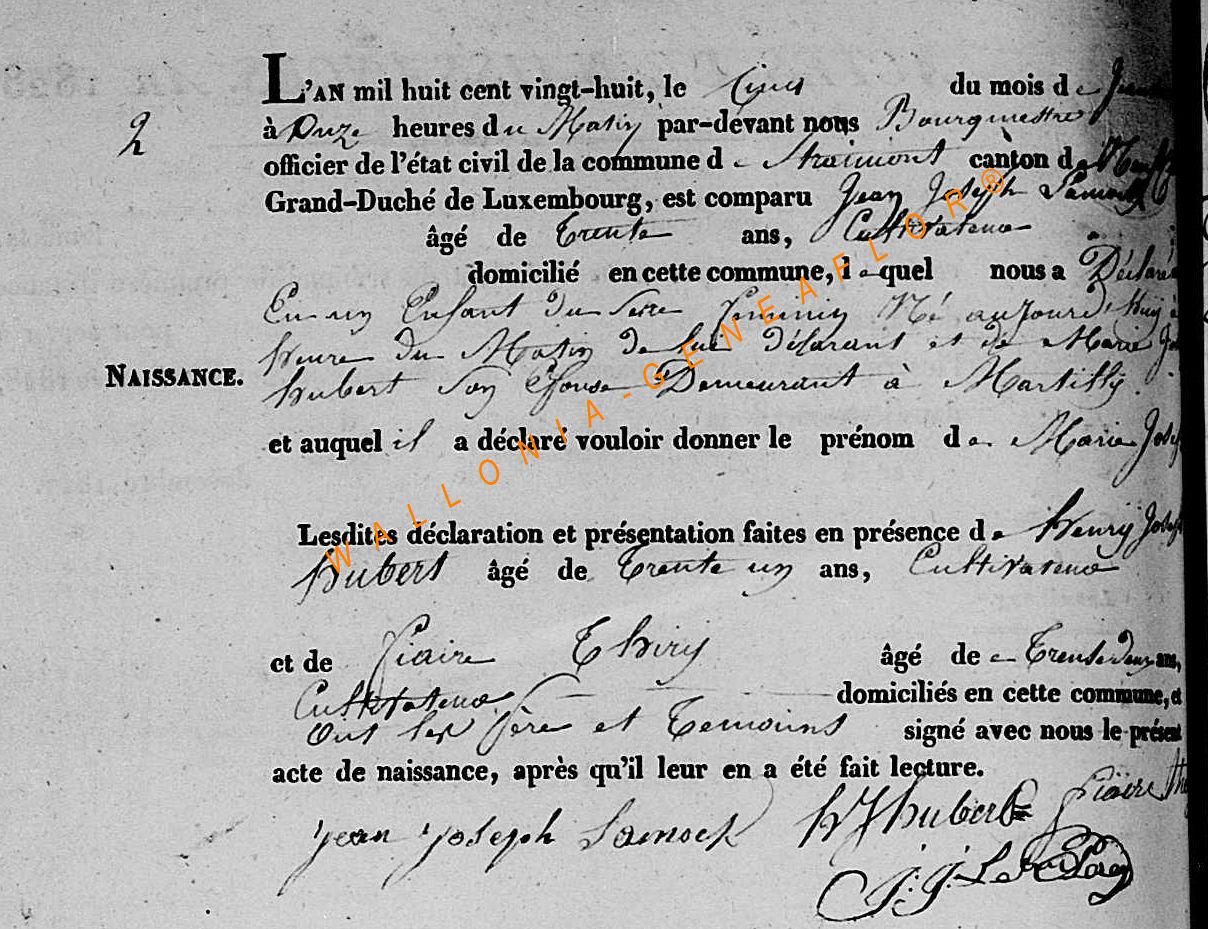 L'AN mil huit cent vingt-huit, le Cinq du mois de
2
à Onze heures du Matin par-devant nous Bourgmestre
officier de l'état civil de la commune de Straimont canton de
Grand-Duché de Luxembourg, est comparu Jean Joseph
âgé de Trente ans, Cultivateur
domicilié en cette commune, lequel nous a Déclaré
un Enfant du Sexe feminin Né aujourd'huy à
heure du Matin de lui déclarant et de Marie
NAISSANCE.
hubert Son Epouse Demeurant à Martilly
et auquel il a déclaré vouloir donner le prénom de Marie
Lesdites déclaration et présentation faites en présence de henry
hubert âgé de Trente un ans, Cultivateur
et de Piaire Thiry âgé de Trente deux ans,
Cultivateur domiciliés en cette commune, et
Ont les père et Temoins signé avec nous le présent
acte de naissance, après qu'il leur en a été fait lecture.
jean joseph Lamock hJhubert piaire
J. J.
WALLONIA-GENEAFLOR®